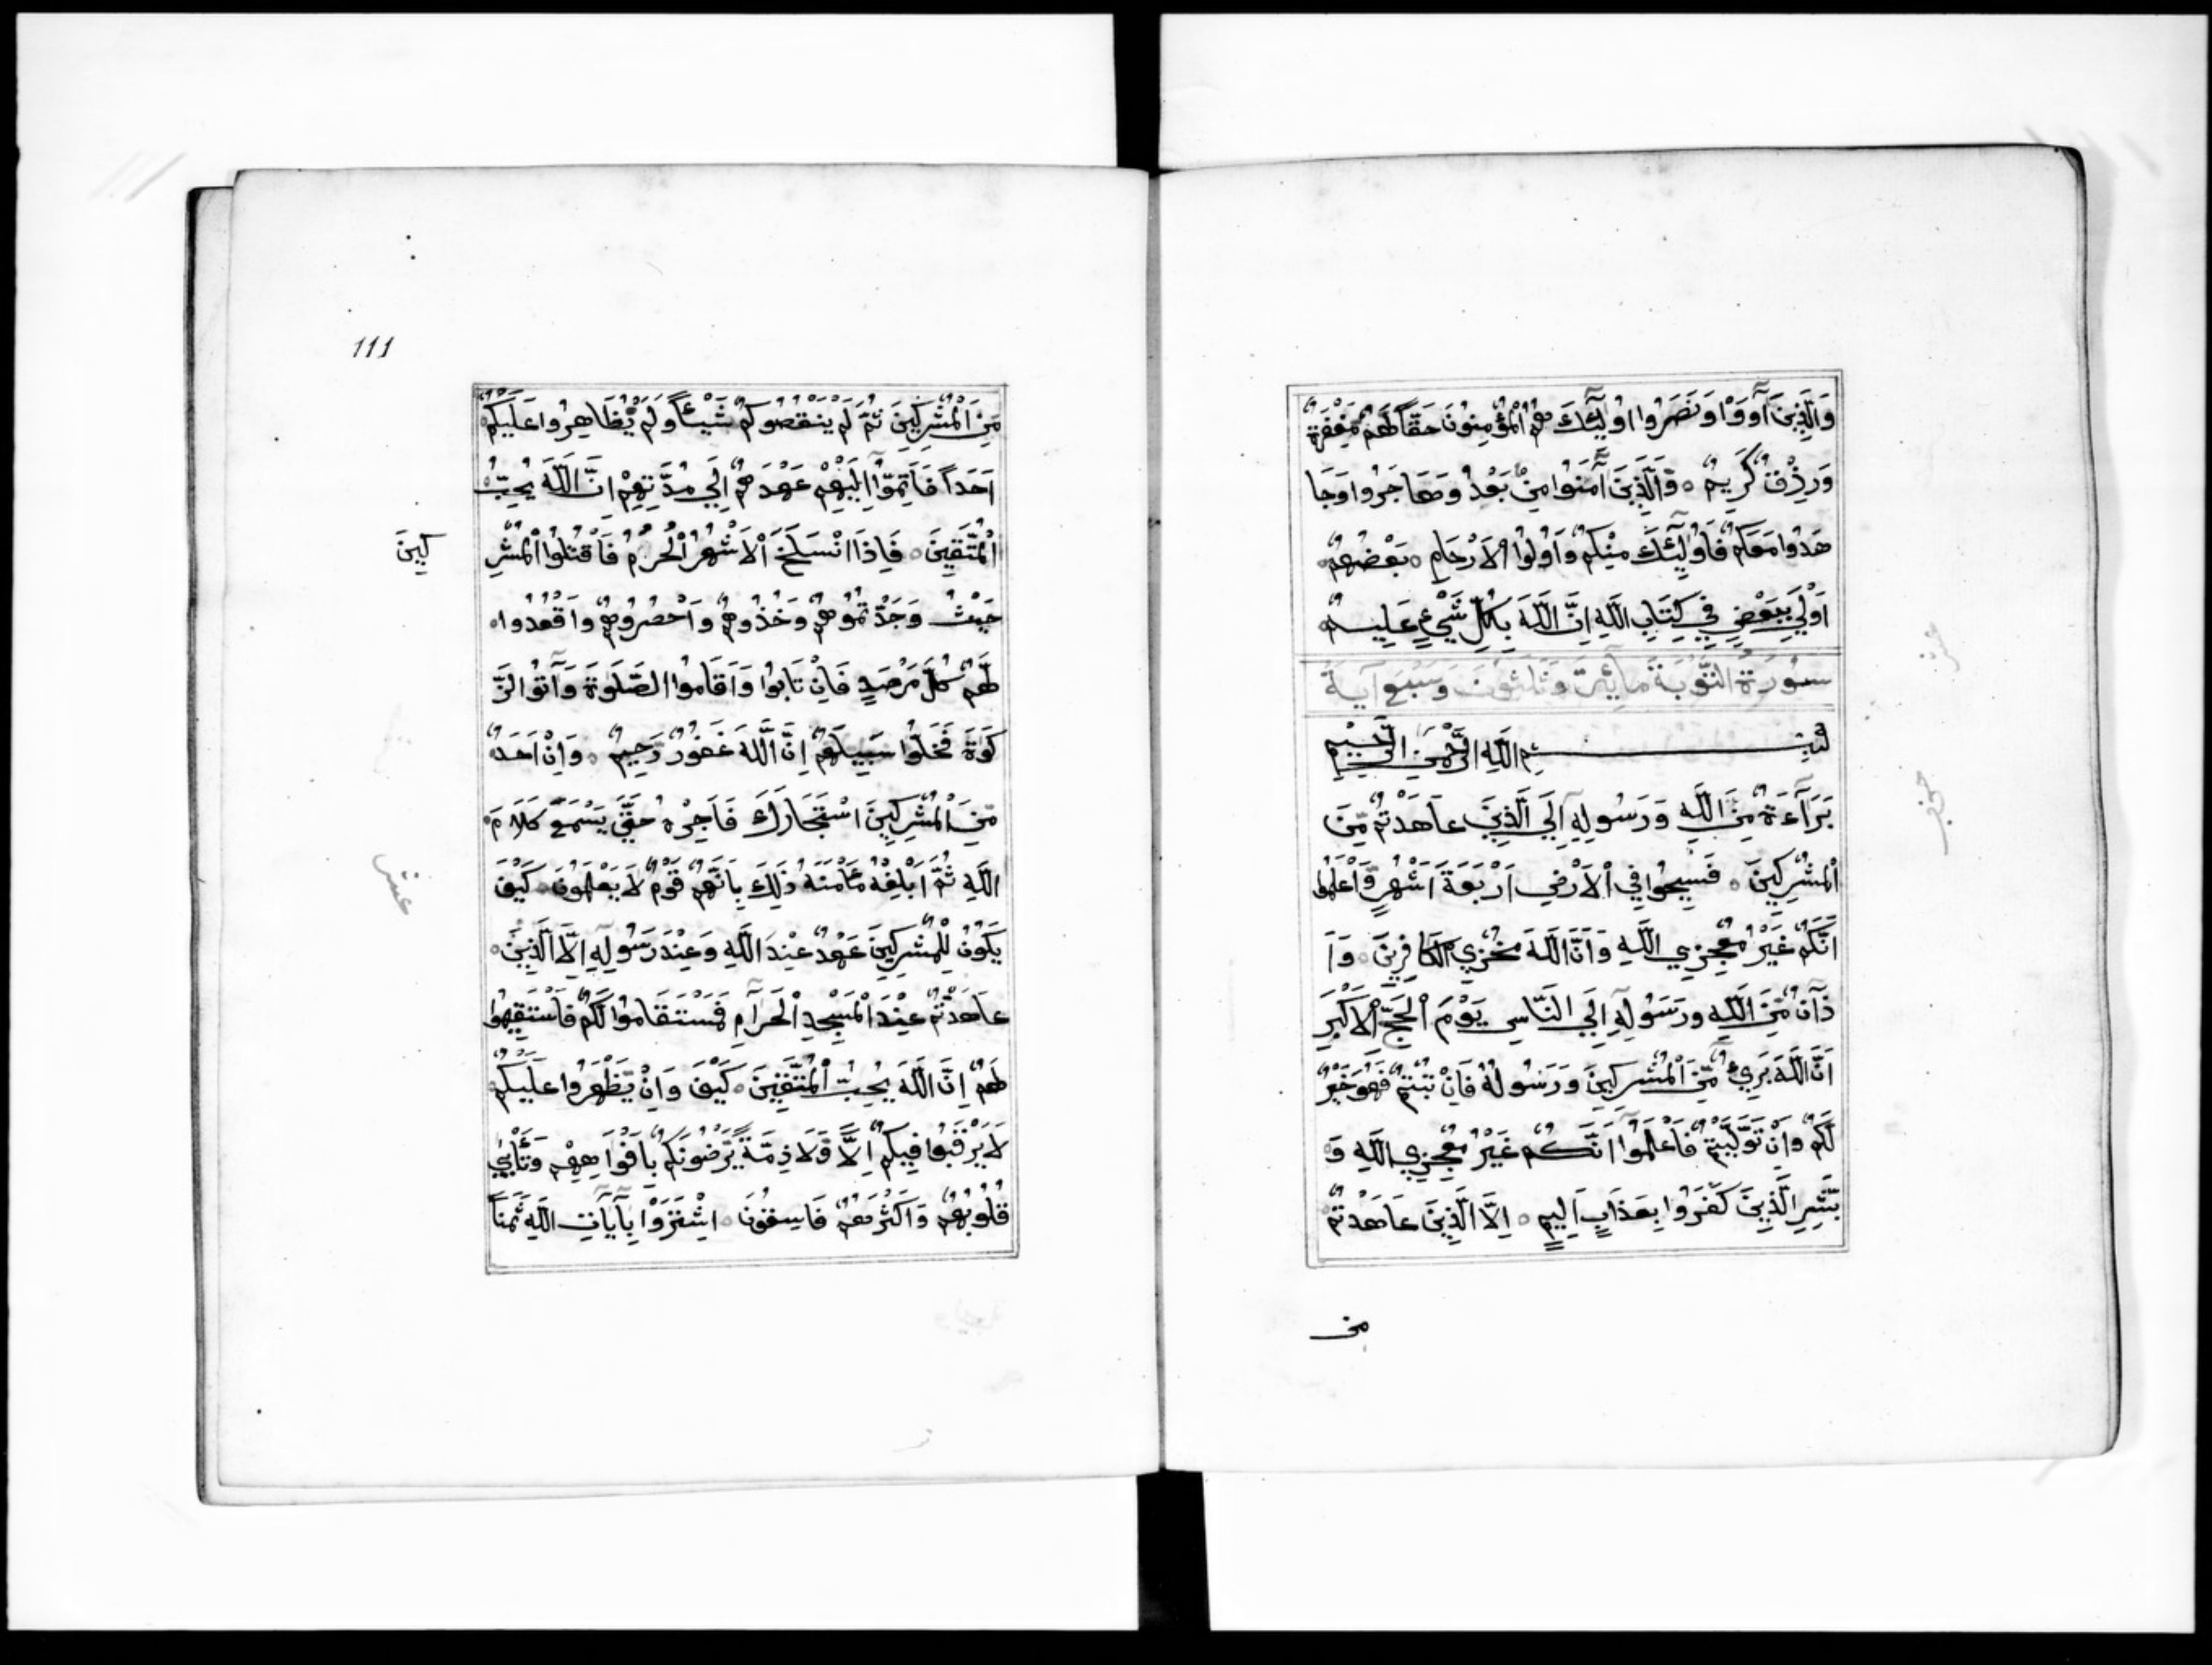 وَالَّذِينَ آوَوْا وَنَصَرُوا اُولَٓئِكَ هُمُ الْمُؤْمِنُونَ حَقًّا لَهُمْ مَغْفِرَةٌ
وَرِزْقٌ كَرِيمٌ ۝ وَالَّذِينَ آمَنُوا مِنْ بَعْدُ وَهَاجَرُوا وَجَا
هَدُوا مَعَكُمْ فَاُولَٓئِكَ مِنْكُمْ وَاُولُوا الْاَرْحَامِ ۝ بَعْضُهُمْ
اَوْلَى بِبَعْضٍ فِي كِتَابِ اللَّهِ اِنَّ اللَّهَ بِكُلِّ شَيْءٍ عَلِيمٌ
سُورَةُ التَّوْبَةِ مِائَة وَثَلٰثُونَ وَسَبْعَ آيَةً
بِسْمِ اللَّهِ الرَّحْمَنِ الرَّحِيمِ
بَرَآءَةٌ مِنَ اللَّهِ وَرَسُولِهِ اِلَى الَّذِينَ عَاهَدْتُمْ مِّنَ
الْمُشْرِكِينَ ۝ فَسِيحُوا فِي الْاَرْضِ اَرْبَعَةَ اَشْهُرٍ وَّاعْلَمُوا
اَنَّكُمْ غَيْرُ مُعْجِزِي اللَّهِ وَاَنَّ اللَّهَ مُخْزِي الْكَافِرِينَ ۝ وَاَ
ذَانٌ مِّنَ اللَّهِ وَرَسُولِهِ اِلَى النَّاسِ يَوْمَ الْحَجِّ الْاَكْبَرِ
اَنَّ اللَّهَ بَرِيءٌ مِّنَ الْمُشْرِكِينَ وَرَسُولُهُ فَاِنْ تُبْتُمْ فَهُوَ خَيْرٌ
لَّكُمْ وَاِنْ تَوَلَّيْتُمْ فَاعْلَمُوا اَنَّكُمْ غَيْرُ مُعْجِزِي اللَّهِ وَ
بَشِّرِ الَّذِينَ كَفَرُوا بِعَذَابٍ اَلِيمٍ ۝ اِلَّا الَّذِينَ عَاهَدْتُمْ
من
111
مِنَ الْمُشْرِكِينَ ثُمَّ لَمْ يَنْقُصُوكُمْ شَيْئًا وَلَمْ يُظَاهِرُوا عَلَيْكُمْ
اَحَدًا فَاَتِمُّوا اِلَيْهِمْ عَهْدَهُمْ اِلَى مُدَّتِهِمْ اِنَّ اللَّهَ يُحِبُّ
الْمُتَّقِينَ ۝ فَاِذَا انْسَلَخَ الْاَشْهُرُ الْحُرُمُ فَاقْتُلُوا الْمُشْرِ
كِينَ
حَيْثُ وَجَدْتُمُوهُمْ وَخُذُوهُمْ وَاحْصُرُوهُمْ وَاقْعُدُوا
لَهُمْ كُلَّ مَرْصَدٍ فَاِنْ تَابُوا وَاَقَامُوا الصَّلَوةَ وَآتَوُا الزَّ
كَوةَ فَخَلُّوا سَبِيلَهُمْ اِنَّ اللَّهَ غَفُورٌ رَحِيمٌ ۝ وَاِنْ اَحَدٌ
مِّنَ الْمُشْرِكِينَ اسْتَجَارَكَ فَاَجِرْهُ حَتَّى يَسْمَعَ كَلَامَ
اللَّهِ ثُمَّ اَبْلِغْهُ مَأْمَنَهُ ذَلِكَ بِاَنَّهُمْ قَوْمٌ لَا يَعْلَمُونَ ۝ كَيْفَ
يَكُونُ لِلْمُشْرِكِينَ عَهْدٌ عِنْدَ اللَّهِ وَعِنْدَ رَسُولِهِ اِلَّا الَّذِينَ
عَاهَدْتُمْ عِنْدَ الْمَسْجِدِ الْحَرَامِ فَمَسْتَقَامُوا لَكُمْ فَاسْتَقِيمُوا
لَهُمْ اِنَّ اللَّهَ يُحِبُّ الْمُتَّقِينَ ۝ كَيْفَ وَاِنْ يَّظْهَرُوا عَلَيْكُمْ
لَا يَرْقُبُوا فِيكُمْ اِلًّا وَّلَا ذِمَّةً يَّرْضُونَكُمْ بِاَفْوَاهِهِمْ وَتَأْبَى
قُلُوبُهُمْ وَاَكْثَرُهُمْ فَاسِقُونَ ۝ اشْتَرَوْا بِآيَاتِ اللَّهِ ثَمَنًا
عشر